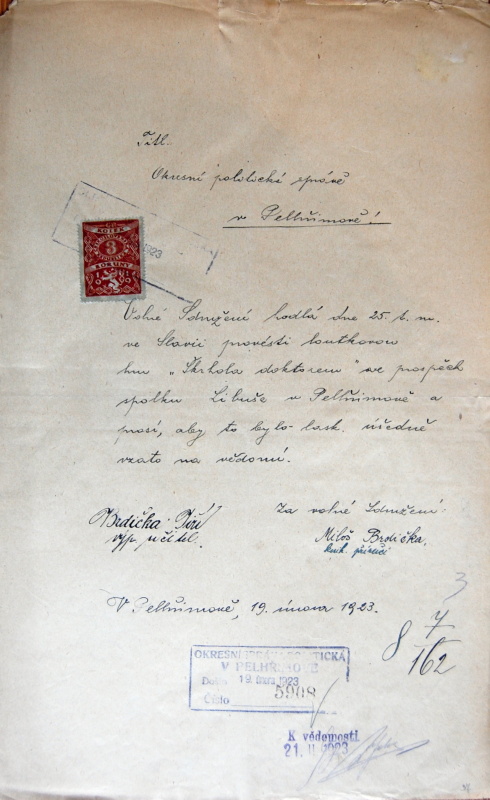 Titl.
Okresní politické správě
v Pelhřimově!
1923
KOLEK
3
KORUNY
Volné Sdružení hodlá dne 25. t. m.
ve Slavii provésti loutkovou
hru „Škrhola doktorem" ve prospěch
spolku Libuše v Pelhřimově a
prosí, aby to bylo lask. úředně
vzato na vědomí.
Za volné Sdružení:
Brdička Jiří
výp. učitel.
Miloš Brdička,
V Pelhřimově, 19. února 1923.
3
8 7/162
OKRESNÍ SPRÁVA POLITICKÁ
V PELHŘIMOVĚ
Došlo 19. února 1923
Číslo 5908
K vědomosti
21. II. 1923